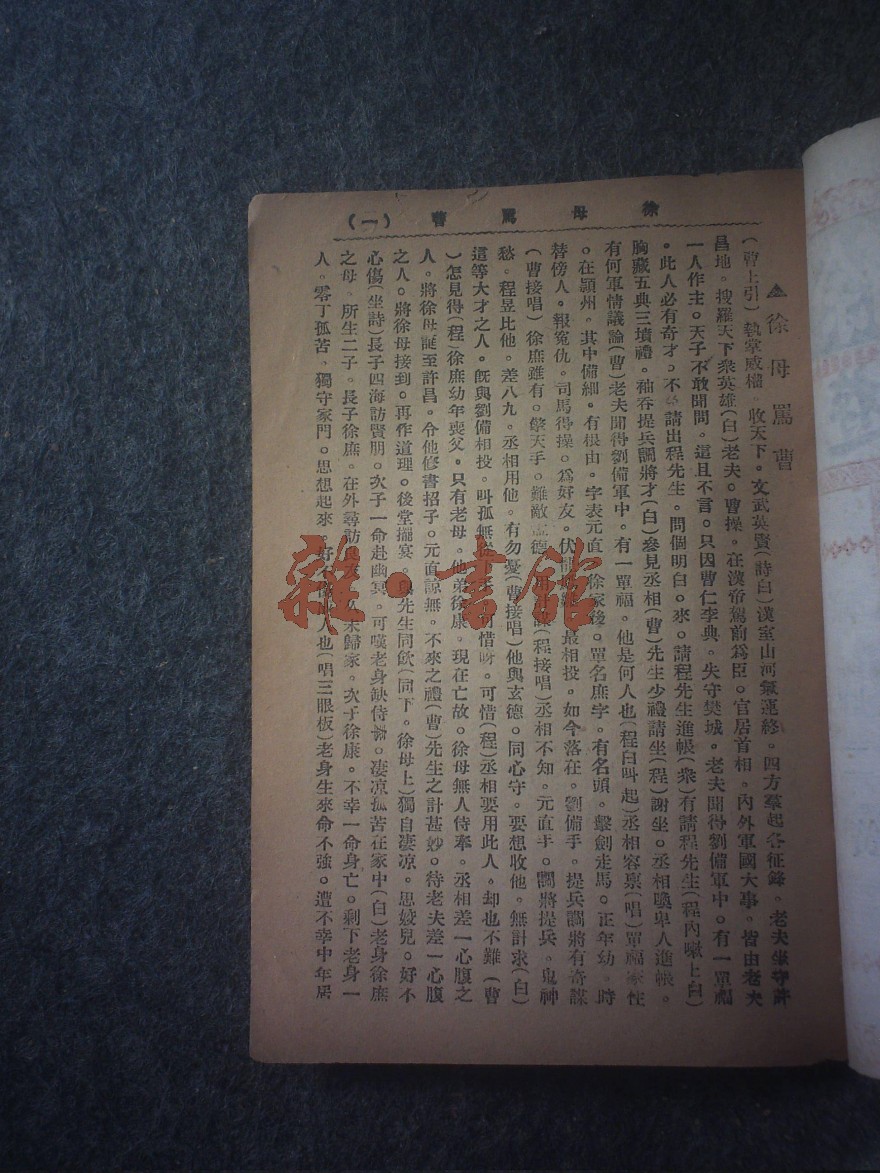 徐母罵曹(一)
徐母罵曹
(曹上引)執掌威權。收天下。文武英賢(詩白)漢室山河氣運終。四方羣起各征鋒。老夫坐守許
昌地。搜羅天下衆英雄(白)老夫。曹操。在漢帝駕前爲臣。官居首相。內外軍國大事。皆由老夫
一人作主。天子不敢聞問。這且不言。只因曹仁李典。失守樊城。老夫聞得劉備軍中。有一單福
。此人必有奇才。不請出程先生。問個明白。來。請程先生進帳(衆)有請程先生(程內嗽上白)
胸藏五典三墳禮。袖吞提兵調將才(白)參見丞相(曹)先生少禮請坐(程)謝坐。丞相喚卑人進帳。
有何軍情議論(曹)老夫聞得劉備軍中。有一單福。他是何人也(程白叫起)丞相容稟(唱)單福家住
。在頴州。其中備細。有根由。字表元直。徐家後。單名庶字。有名頭。擊劍走馬。正年幼。時
替傍人。報寃仇。司馬得操。爲好友。伏龍最相投。如今落在。劉備手。提兵調將有奇謀
(曹接唱)徐庶雖有。擎天手。難敵德。用計謀(程接唱)丞相不知。元直手。調將提兵。鬼神
愁。程昱比他。差八九。丞相用他。有勿憂(曹接唱)他與玄德。同心守。要想收他。無計求(白)
這等大才之人。旣與劉備相投。叫孤無可惜呀。可惜(程)丞相要用此人。却也不難(曹
)怎見得(程)徐庶幼年喪父。只有老母。他弟徐康。現在亡故。徐母無人侍奉。丞相差一心腹之
人。將徐母誆至許昌。令他修書招子。元直諒無。不來之禮(曹)先生之計甚妙。待老夫差一心腹
之人。將徐母接到。再作道理。後堂擺宴。與先生同飲(同下。徐母上)獨自凄凉。思姣兒。好不
心傷(坐詩)長子四海訪賢朋。次子一命赴幽冥。可嘆老身缺侍奉。凄凉孤苦在家中(白)老身徐庶
之母。所生二子。長子徐庶。在外尋訪未歸家。次子徐康。不幸一命身亡。剩下老身一
人。零丁孤苦。獨守家門。思想起來。好不人也(唱三眼板)老身生來命不強。遭不幸中年居
雜·書館